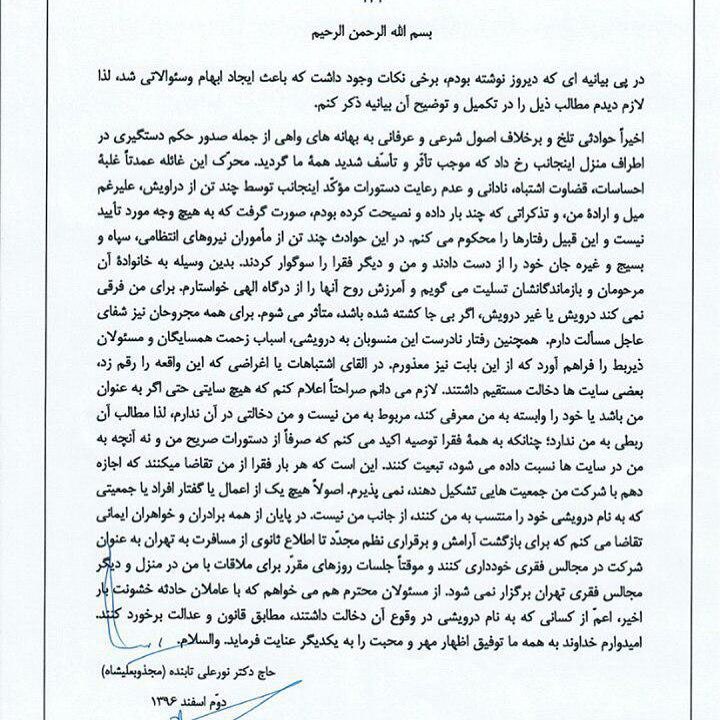 بسم الله الرحمن الرحیم
در پی بیانیه ای که دیروز نوشته بودم، برخی نکات وجود داشت که باعث ایجاد ابهام وسئوالاتی شد، لذا
لازم دیدم مطالب ذیل را در تکمیل و توضیح آن بیانیه ذکر کنم.
اخیراً حوادثی تلخ و برخلاف اصول شرعی و عرفانی به بهانه های واهی از جمله صدور حکم دستگیری در
اطراف منزل اینجانب رخ داد که موجب تأثّر و تأسّف شدید همهٔ ما گردید. محرّک این غائله عمدتاً غلبهٔ
احساسات، قضاوت اشتباه، نادانی و عدم رعایت دستورات مؤکّد اینجانب توسط چند تن از دراویش، علیرغم
میل و ارادهٔ من، و تذکراتی که چند بار داده و نصیحت کرده بودم، صورت گرفت که به هیچ وجه مورد تأیید
نیست و این قبیل رفتارها را محکوم می کنم. در این حوادث چند تن از مأموران نیروهای انتظامی، سپاه و
بسیج و غیره جان خود را از دست دادند و من و دیگر فقرا را سوگوار کردند. بدین وسیله به خانوادهٔ آن
مرحومان و بازماندگانشان تسلیت می گویم و آمرزش روح آنها را از درگاه الهی خواستارم. برای من فرقی
نمی کند درویش یا غیر درویش، اگر بی جا کشته شده باشد، متأثر می شوم. برای همه مجروحان نیز شفای
عاجل مسألت دارم. همچنین رفتار نادرست این منسوبان به درویشی، اسباب زحمت همسایگان و مسئولان
ذیربط را فراهم آورد که از این بابت نیز معذورم. در القای اشتباهات یا اغراضی که این واقعه را رقم زد،
بعضی سایت ها دخالت مستقیم داشتند. لازم می دانم صراحتاً اعلام کنم که هیچ سایتی حتی اگر به عنوان
من باشد یا خود را وابسته به من معرفی کند، مربوط به من نیست و من دخالتی در آن ندارم، لذا مطالب آن
ربطی به من ندارد؛ چنانکه به همهٔ فقرا توصیه اکید می کنم که صرفاً از دستورات صریح من و نه آنچه به
من در سایت ها نسبت داده می شود، تبعیت کنند. این است که هر بار فقرا از من تقاضا میکنند که اجازه
دهم با شرکت من جمعیت هایی تشکیل دهند، نمی پذیرم. اصولاً هیچ یک از اعمال یا گفتار افراد یا جمعیتی
که به نام درویشی خود را منتسب به من کنند، از جانب من نیست. در پایان از همه برادران و خواهران ایمانی
تقاضا می کنم که برای بازگشت آرامش و برقراری نظم مجدّد تا اطلاع ثانوی از مسافرت به تهران به عنوان
شرکت در مجالس فقری خودداری کنند و موقتاً جلسات روزهای مقرّر برای ملاقات با من در منزل و دیگر
مجالس فقری تهران برگزار نمی شود. از مسئولان محترم هم می خواهم که با عاملان حادثه خشونت بار
اخیر، اعمّ از کسانی که به نام درویشی در وقوع آن دخالت داشتند، مطابق قانون و عدالت برخورد کنند.
امیدوارم خداوند به همه ما توفیق اظهار مهر و محبت را به یکدیگر عنایت فرماید. والسلام.
حاج دکتر نورعلی تابنده (مجذوبعلیشاه)
دوّم اسفند ۱۳۹۶